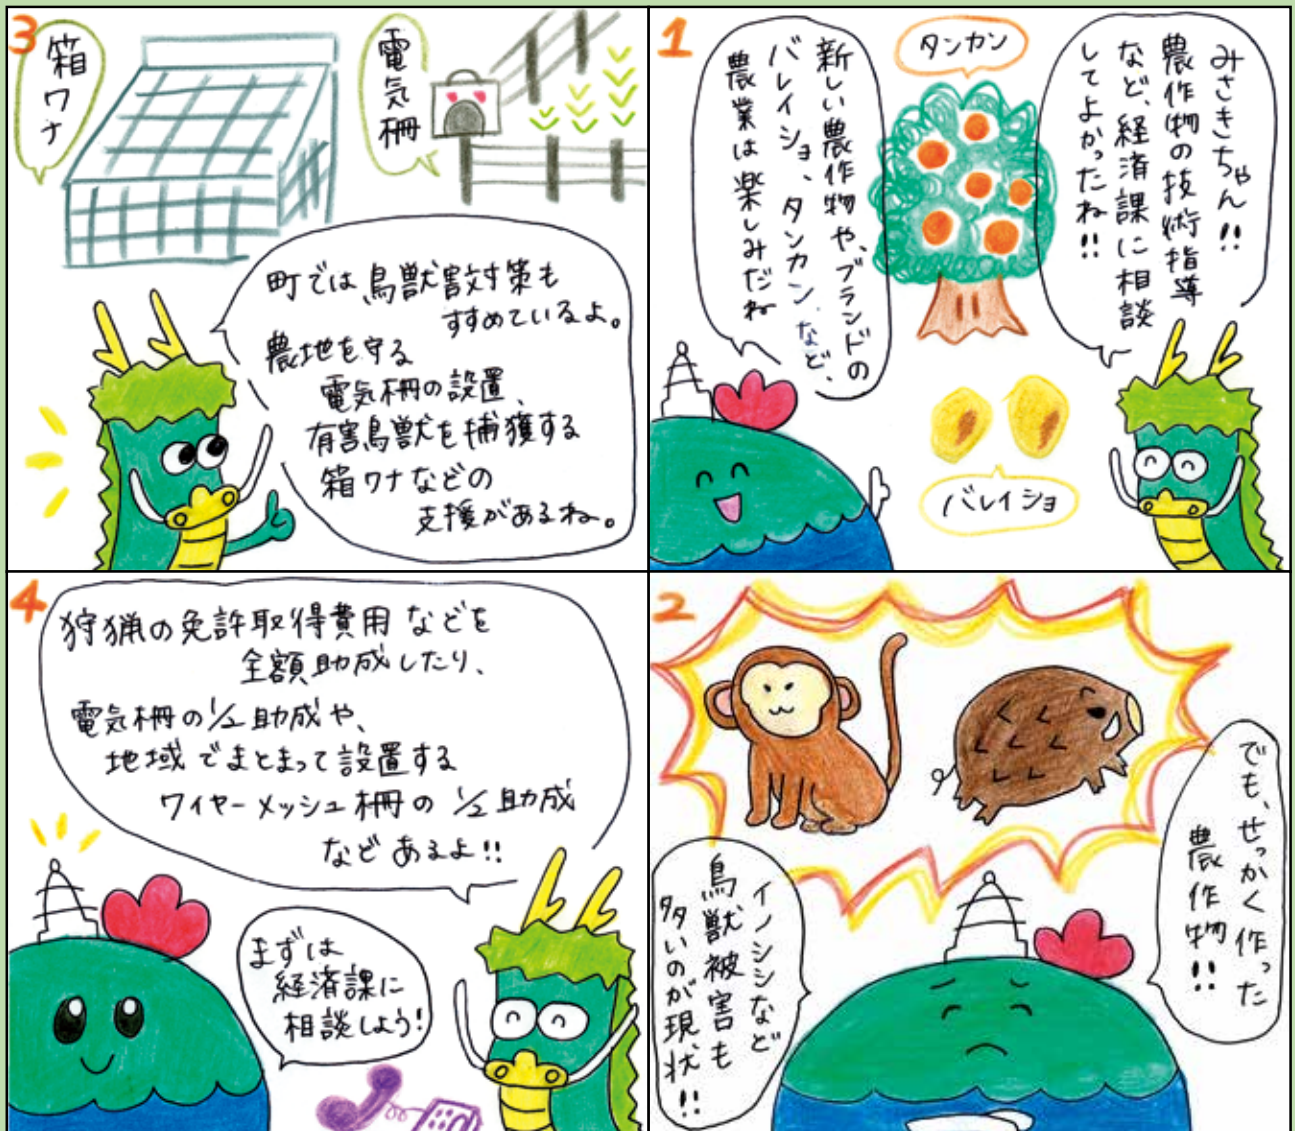 1
みさきちゃん!!
農作物の技術指導
など、経済課に相談
してよかったね!!
タンカン
新しい農作物や、ブランドの
バレイショ、タンカンなど、
農業は楽しみだね
バレイショ
2
でも、せっかく作った
農作物!!
イノシシなど
鳥獣被害も
多いのが現状!!
3
箱ワナ
電気柵
町では鳥獣害対策も
すすめているよ。
農地を守る
電気柵の設置、
有害鳥獣を捕獲する
箱ワナなどの
支援があるね。
4
狩猟の免許取得費用などを
全額助成したり、
電気柵の1/2助成や、
地域でまとまって設置する
ワイヤーメッシュ柵の1/2助成
などあるよ!!
まずは
経済課に
相談しよう!